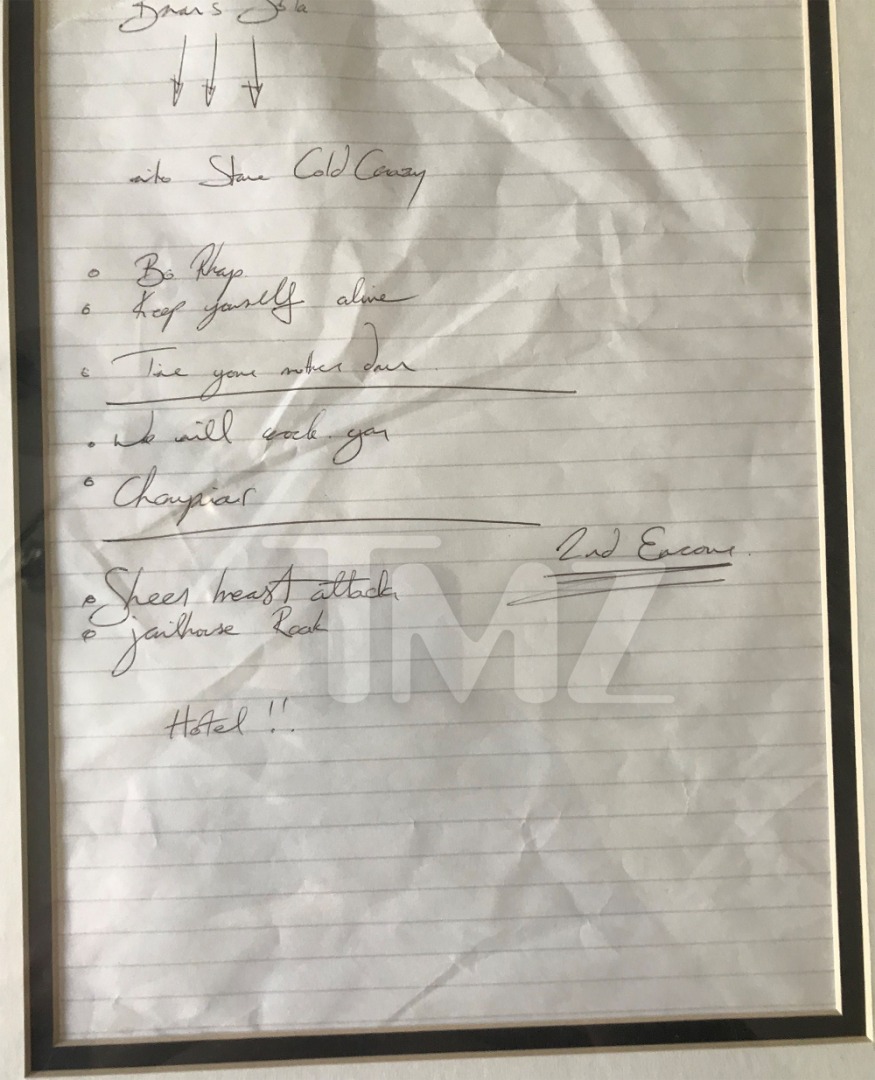 Brian's Solo
into Stone Cold Crazy
Bo Rhap
Keep yourself alive
Tie your mother down
We will rock you
Champions
2nd Encore.
Sheer heart attack
jailhouse Rock
Hotel !!
TMZ